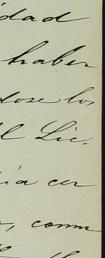 idad
haber
dose los
el Lic.
ia cer
, como